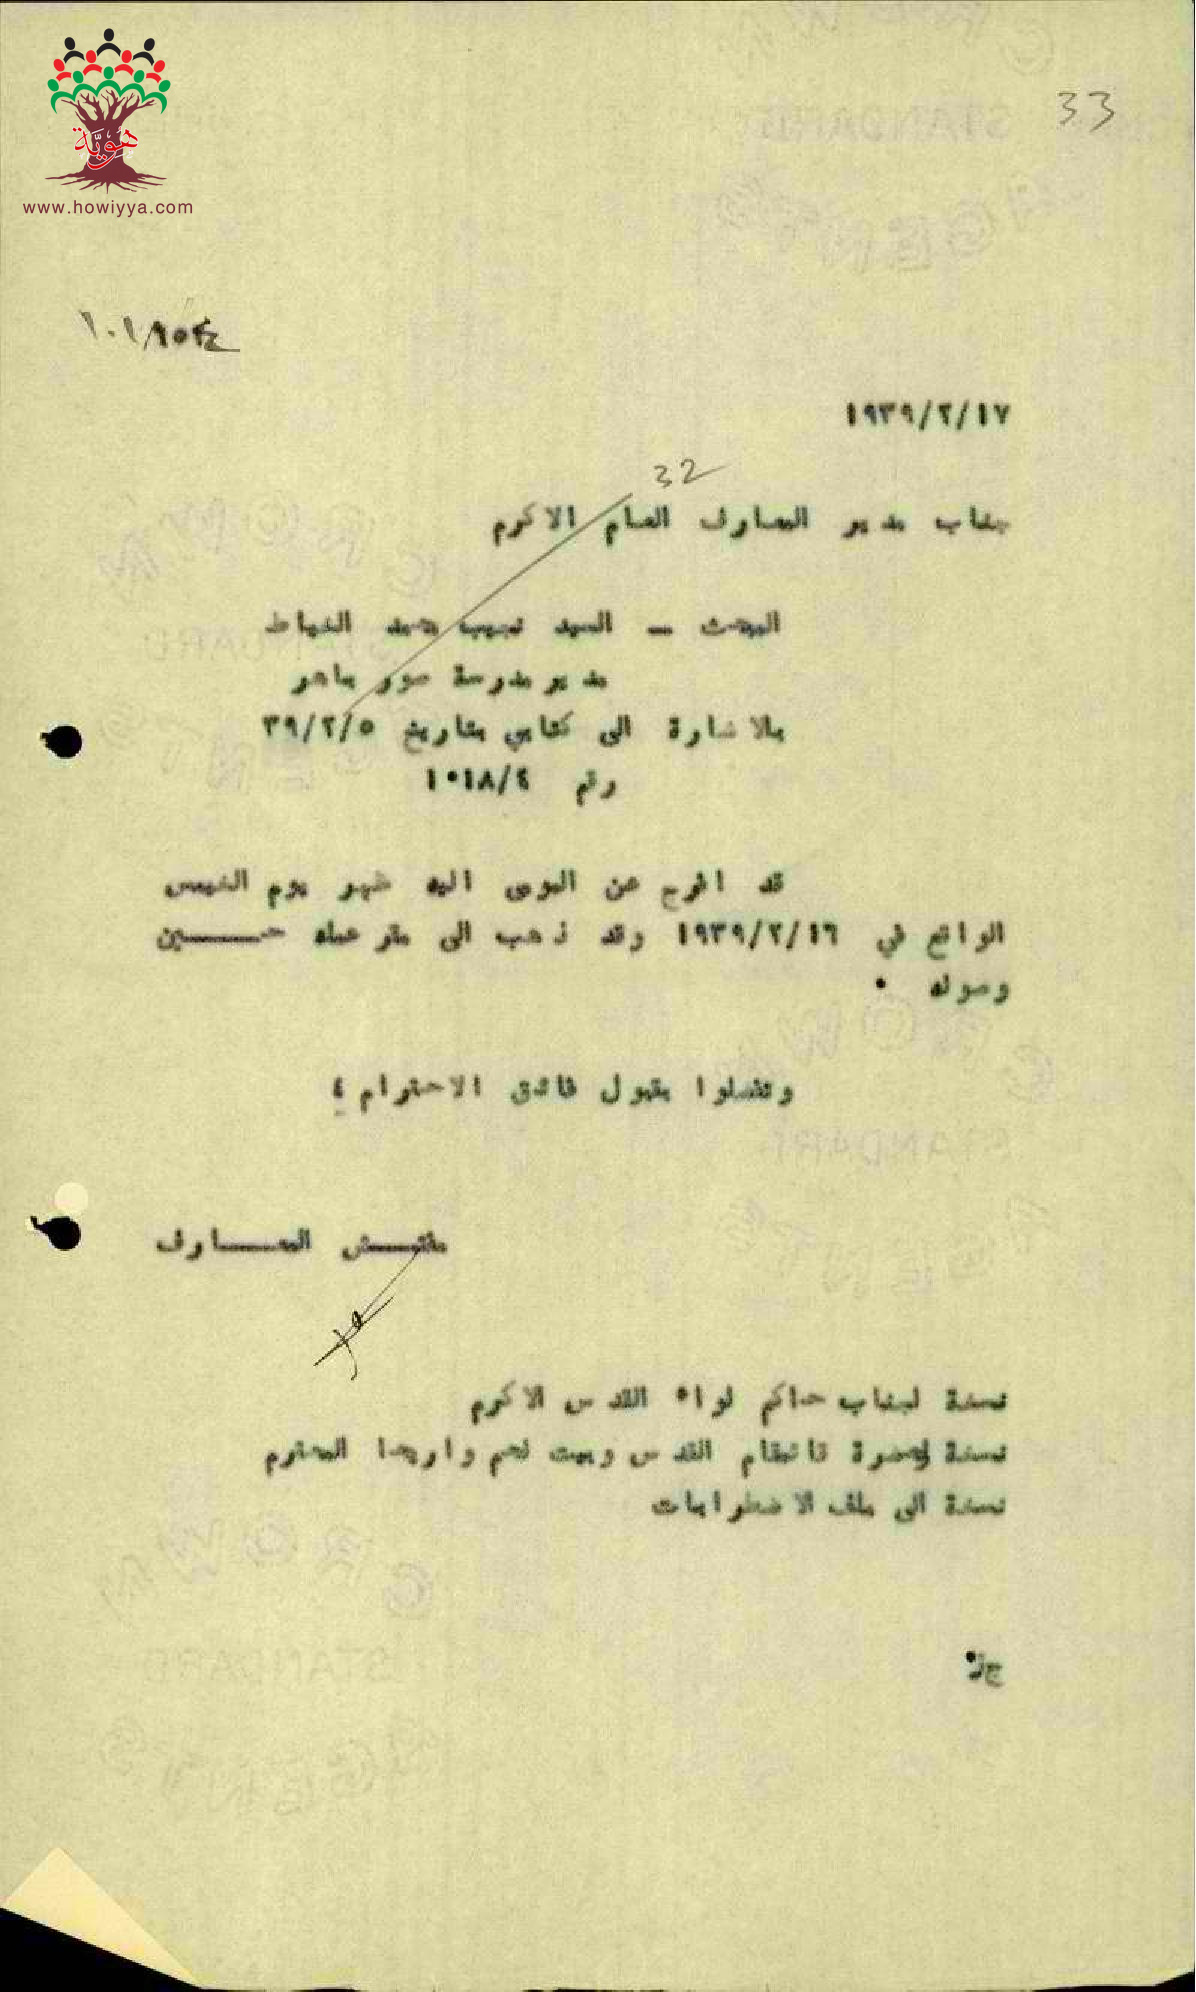 هوية
www.howiyya.com
33
١٩٣٩/٢/١٧
32
جناب مدير المعارف العام الاكرم
المبحث – السيد نجيب محمد الخياط
مدير مدرسة صور باهر
بالاشارة الى كتابي بتاريخ ٣٩/٢/٥
رقم ١٠١٨/٤
قد افرج عن المومى اليه ظهر يوم الخميس
الواقع في ١٩٣٩/٢/١٦ وقد ذهب الى مقر عمله حـــين
وصوله ٠
وتفضلوا بقبول فائق الاحترام ؛
مفتــش المعـــارف
نسخة لجناب حاكم لواء القدس الاكرم
نسخة لحضرة قائمقام القدس وبيت لحم واريحا المحترم
نسخة الى ملف الاضطرابات